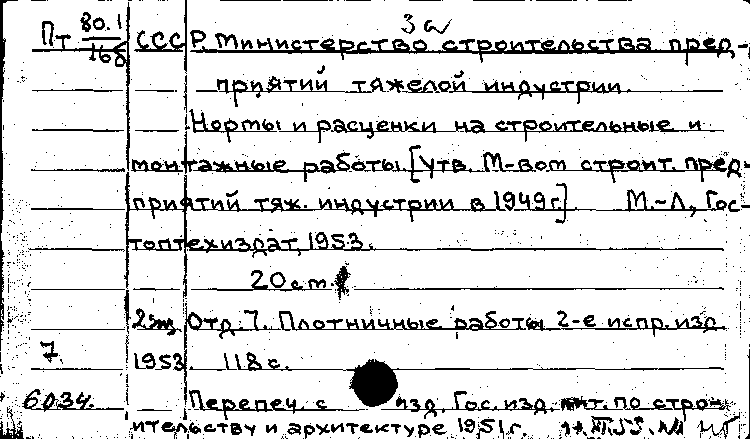 3а
Пт 80.1/166 СССР. Министерство строительства пред-
приятий тяжелой индустрии.
Нормы и расценки на строительные и
монтажные работы. [Утв. М-вом строит. пред-
приятий тяж. индустрии в 1949г.] М.-Л., Гос-
топтехиздат, 1953.
20 см.
2 экз. Отд. 7. Плотничные работы 2-е испр. изд.
7. 1953. 118 с.
6034. Перепеч. с изд. Гос. изд. лит. по строи-
тельству и архитектуре 1951г.